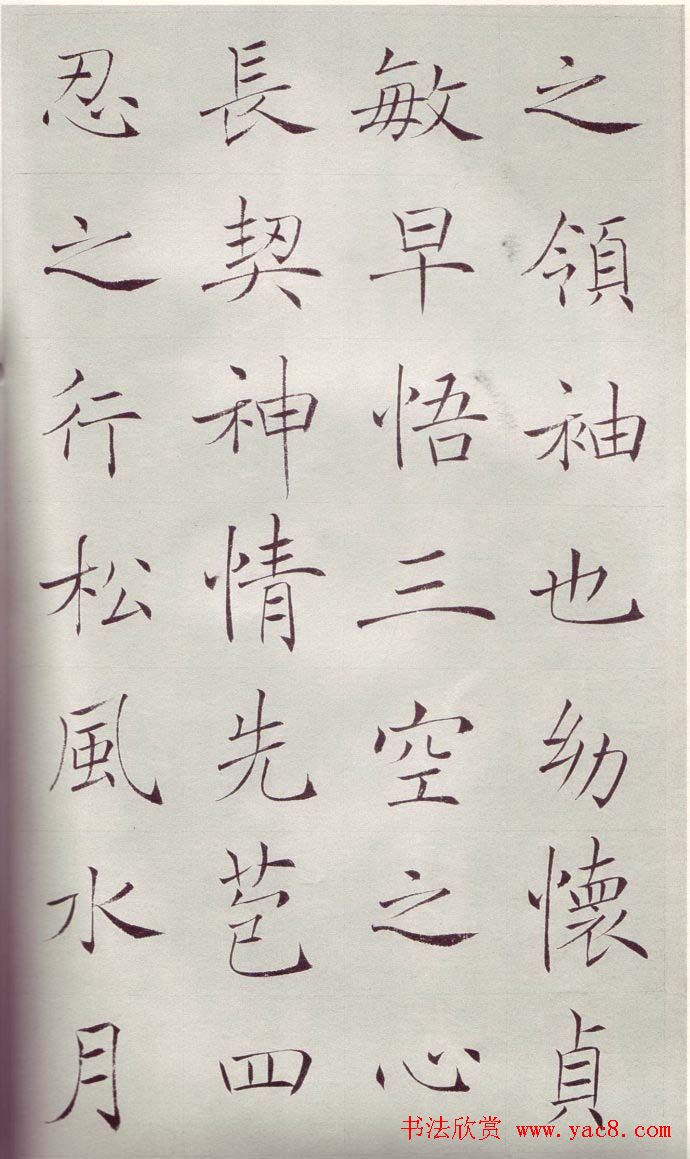 之領袖也幼懷貞
敏早悟三空之心
長契神情先苞四
忍之行松風水月
书法欣赏 www.yac8.com